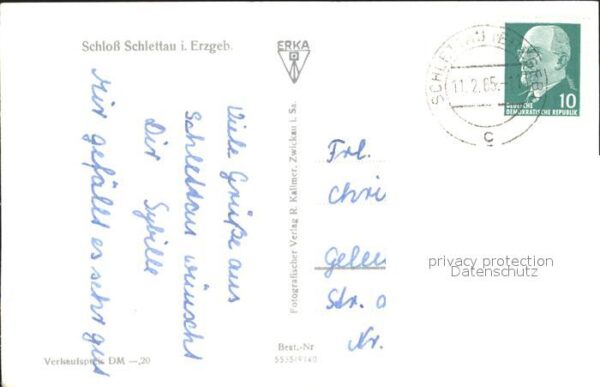 Schloß Schlettau i. Erzgeb.
ERKA
SCHLETTAU (ERZGEB)
11.2.65.-1
c
10
DEUTSCHE
DEMOKRATISCHE REPUBLIK
Viele Grüße aus
Schlettau wünscht
Dir Sybille
Mir gefällt es sehr gut
Fotografischer Verlag R. Kallmer, Zwickau i. Sa.
Frl.
Chri
Gelen
Str. d
Nr.
privacy protection
Datenschutz
Verkaufspreis DM —,20
Best.-Nr